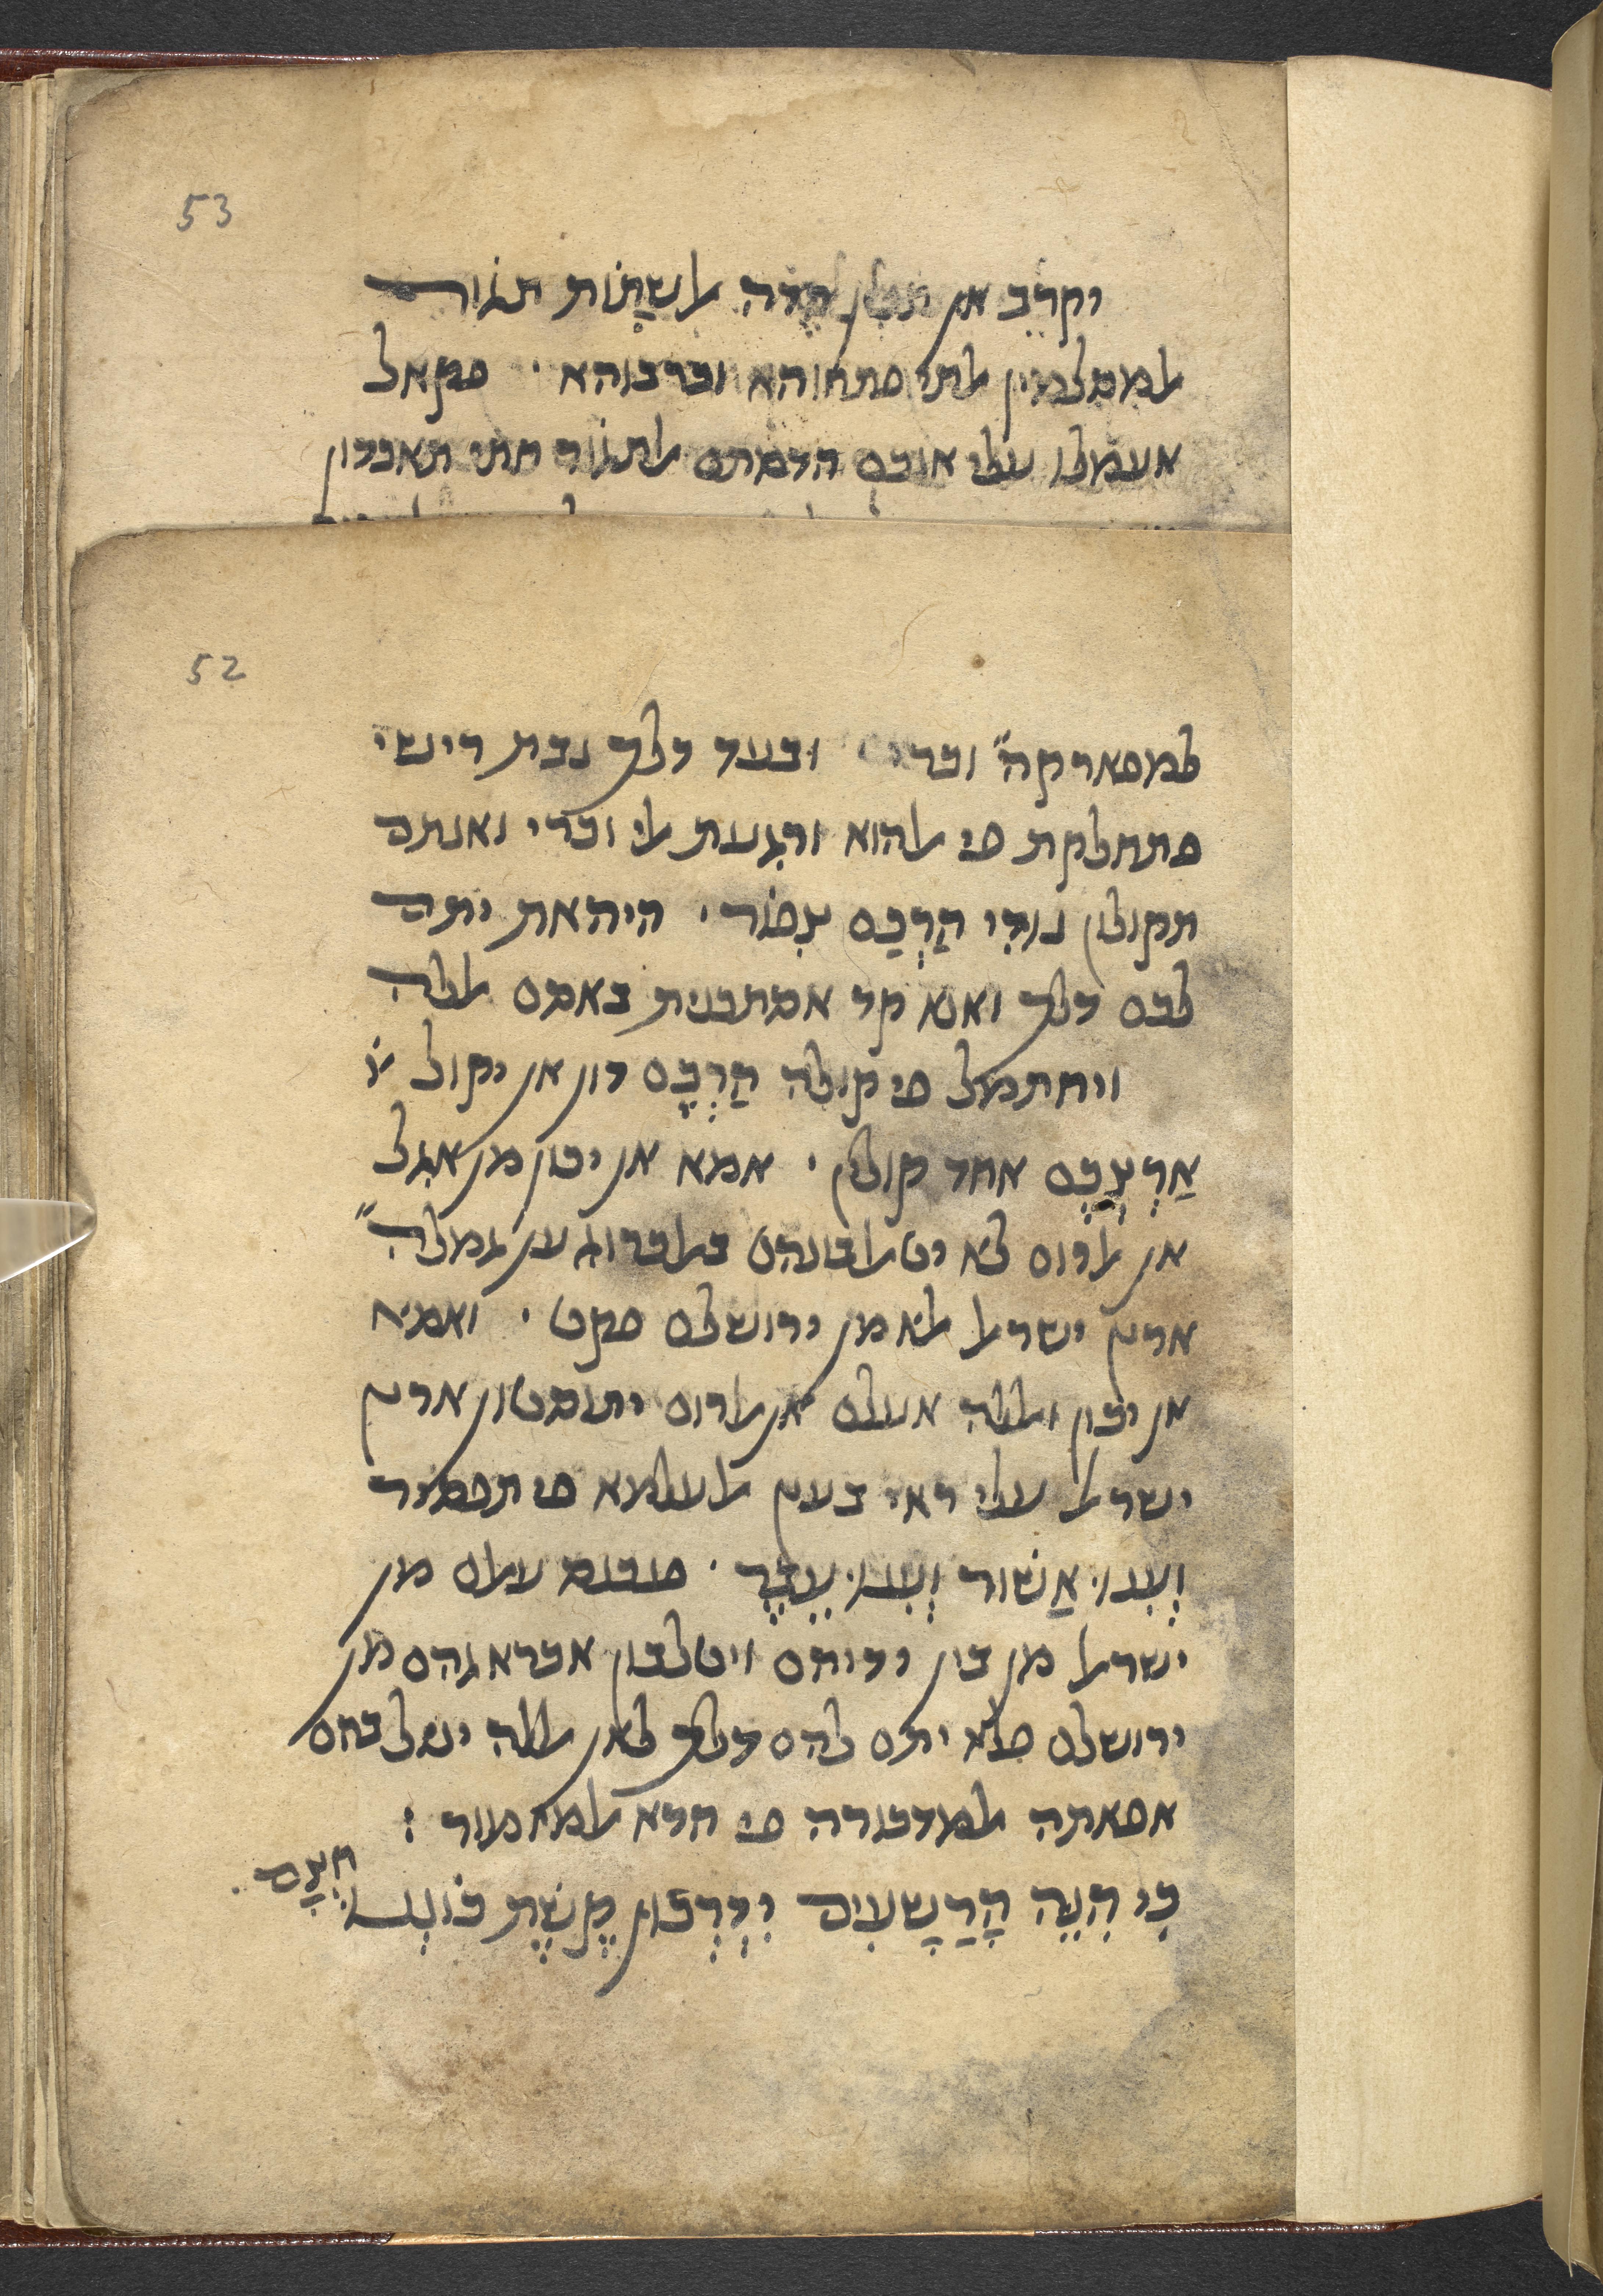 53
יקרב אן תכון הדה אלשתות תגור
אלמסלמין אלתי פתחוהא וכרבוהא · פקאל
אעמלו עלי אנכם הדמתם אלתגור חתי תאכדון
52
למפארקה̈ וכרי ובעד דלך נבת רישי
פתחלקת פי אלהוא ורגעת אלי וכרי ואנתם
תקולון נודי הַרְכֶם צפור · היהאת יתם
לכם דלך ואנא קד אסתכנית באסם אללה
ויחתמל פי קולה הַרְכֶם דון אן יקול
אַרְצְכֶם אחד קולין · אמא אן יכון מן אגל
אן אלרום לא יטאלבונהם באלכרוג ען גמלה̈
ארץ ישראל אלא מן ירושלם פקט · ואמא
אן יכון ואללה אעלם אן אלרום יתוסטון ארץ
ישראל עלי ראי בעץ אלעלמא פי תפסיר
וְעִנוּ אַשׁוּר וְעִנוּ עֵבֶר ·
ישראל מן בין ידיהם ויטלבון אכראגהם מן
ירושלם פלא יתם להם דלך לאן אללה יגלבהם
אפאתה אלמדכורה פי הדא אלמזמור :
כִּי הִנֵּה הָרְשָׁעִים יִדְרְכוּן קֶשֶׁת כּוֹנְנוּ חִצָּם ·